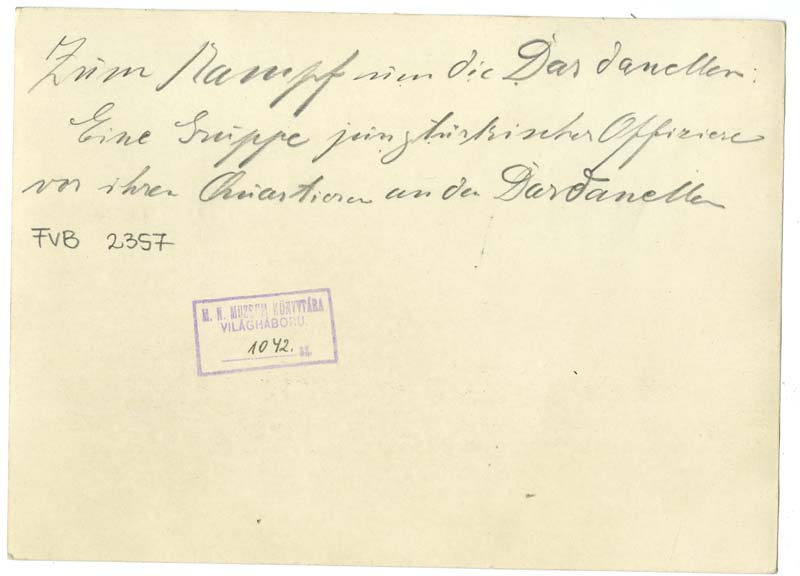 Zum Kampf um die Dardanellen:
Eine Gruppe jungtürkischer Offiziere
vor ihren Quartieren an den Dardanellen
FvB 2357
M. N. MUZEUM KÖNYVTÁRA
VILÁGHÁBORU.
1042. sz.